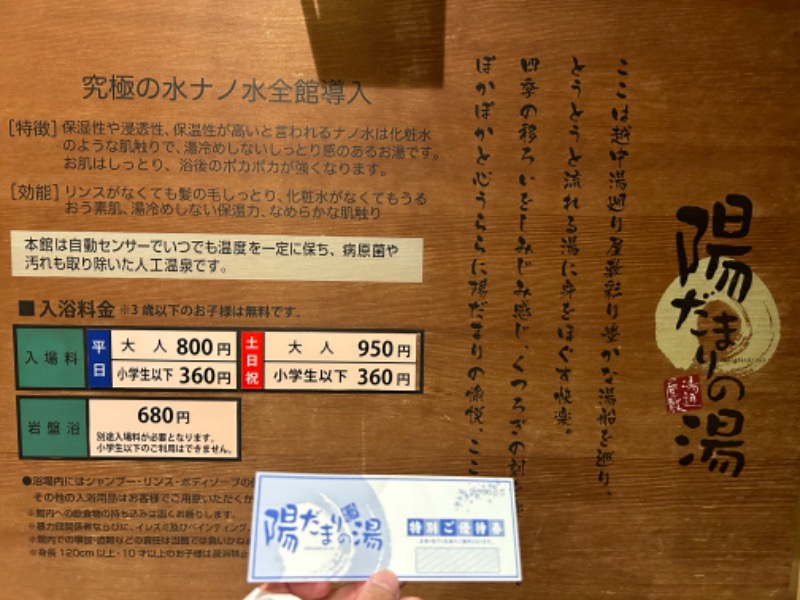 究極の水ナノ水全館導入
[特徴] 保湿性や浸透性、保温性が高いと言われるナノ水は化粧水
のような肌触りで、湯冷めしないしっとり感のあるお湯です。
お肌はしっとり、浴後のポカポカが強くなります。
[効能] リンスがなくても髪の毛しっとり、化粧水がなくてもうる
おう素肌、湯冷めしない保温力、なめらかな肌触り
本館は自動センサーでいつでも温度を一定に保ち、病原菌や
汚れも取り除いた人工温泉です。
■入浴料金 ※3歳以下のお子様は無料です。
入場料 平日 大人 800円 土日祝 大人 950円
小学生以下 360円 小学生以下 360円
岩盤浴 680円
別途入場料が必要となります。
小学生以下のご利用はできません。
●浴場内にはシャンプー・リンス・ボディソープの
その他の入浴用品はお客様でご用意いただくか
※館内への飲食物の持ち込みは固くお断りします。
※暴力団関係者ならびに、イレズミ及びペインティング、
※館内での事故・盗難などの責任は当館では負いかね
※身長120cm以上・10才以上のお子様は混浴禁止
ここは越中湯廻り屋敷彩り豊かな湯船を巡り、
とうとうと流れる湯に身をほぐす快楽。
四季の移ろいをしみじみ感じ、くつろぎの刻
ぽかぽかと心うららに陽だまりの愉悦、ここ
陽だまりの湯
湯廻屋敷
陽だまりの湯
特別ご優待券